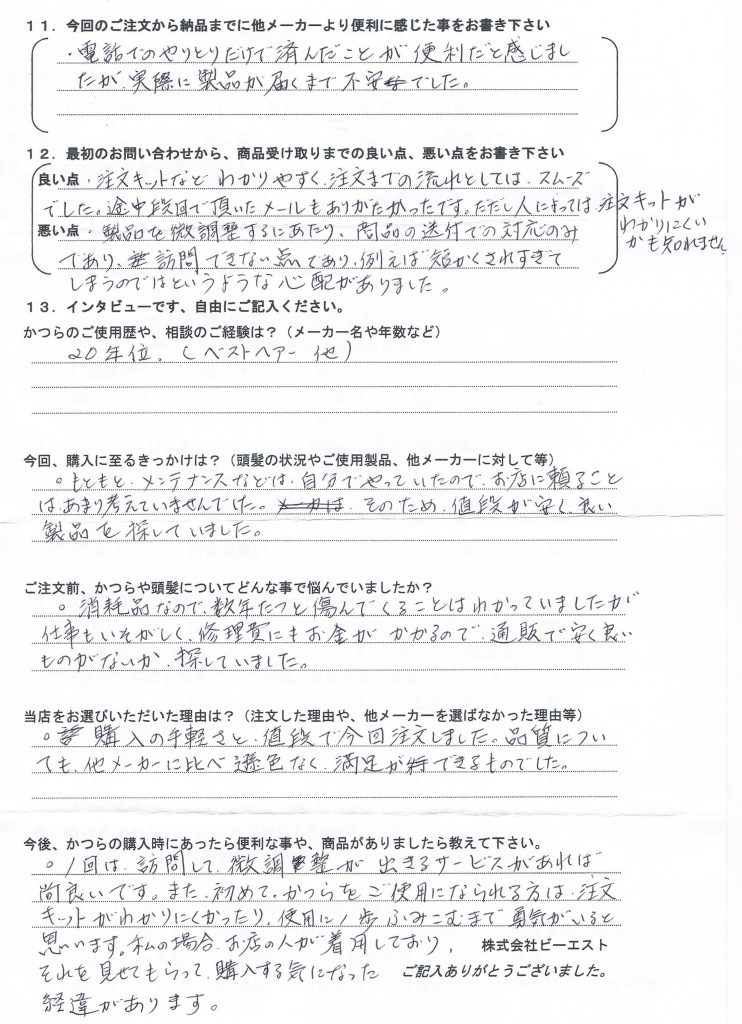 １１．今回のご注文から納品までに他メーカーより便利に感じた事をお書き下さい
・電話でのやりとりだけで済んだことが便利だと感じまし
たが、実際に製品が届くまで不安でした。
１２．最初のお問い合わせから、商品受け取りまでの良い点、悪い点をお書き下さい
良い点・注文キットなどわかりやすく、注文までの流れとしては、スムーズ
でした。途中段階で頂いたメールもありがたかったです。ただし人によっては、注文キットが
わかりにくい
かも知れません
悪い点・製品を微調整するにあたり、商品の送付での対応のみ
であり、訪問できない点であり、例えば短かくされすぎて
しまうのではというような心配がありました。
１３．インタビューです、自由にご記入ください。
かつらのご使用歴や、相談のご経験は？（メーカー名や年数など）
20年位．（ベストヘアー 他）
今回、購入に至るきっかけは？（頭髪の状況やご使用製品、他メーカーに対して等）
○もともと、メンテナンスなどは、自分でやっていたので、お店に頼ること
は、あまり考えていませんでした。そのため、値段が安く、良い
製品を探していました。
ご注文前、かつらや頭髪についてどんな事で悩んでいましたか？
○消耗品なので、数年たつと傷んでくることはわかっていましたが
仕事もいそがしく、修理費にもお金がかかるので、通販で安く良い
ものがないか、探していました。
当店をお選びいただいた理由は？（注文した理由や、他メーカーを選ばなかった理由等）
○購入の手軽さと、値段で今回注文しました。品質につい
ても、他メーカーに比べ遜色なく、満足ができるものでした。
今後、かつらの購入時にあったら便利な事や、商品がありましたら教えて下さい。
○1回は、訪問して、微調整が出きるサービスがあれば
尚良いです。また、初めて、かつらをご使用になられる方は、注文
キットがわかりにくかったり、使用に1歩ふみこむまで勇気がいると
思います。私の場合、お店の人が着用しており、
株式会社ビーエスト
それを見せてもらって、購入する気になった
ご記入ありがとうございました。
経違があります。